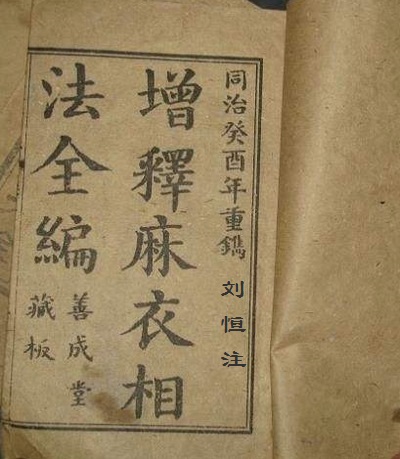 同治癸酉年重鐫
刘恒注
增釋麻衣相
法全編
善成堂
藏板